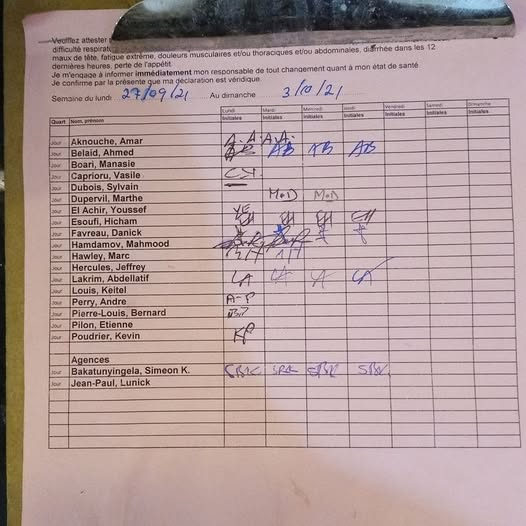 Veuillez attester
difficulté respirat
maux de tête, fatigue extrême, douleurs musculaires et/ou thoraciques et/ou abdominales, diarrhée dans les 12
dernières heures, perte de l'appétit.
Je m'engage à informer immédiatement mon responsable de tout changement quant à mon état de santé.
Je confirme par la présente que ma déclaration est véridique.
Semaine du lundi 27/09/21 Au dimanche 3/10/21
Lundi Mardi Mercredi Jeudi Vendredi Samedi Dimanche
Quart Nom, prénom Initiales Initiales Initiales Initiales Initiales Initiales Initiales
Jour Aknouche, Amar A.A. A.A.
Jour Belaid, Ahmed AB AB AB AB
Jour Boari, Manasie
Jour Caprioru, Vasile
Jour Dubois, Sylvain
Jour Dupervil, Marthe M.D M.D
Jour El Achir, Youssef YE
Jour Esoufi, Hicham EH EH EH EH
Jour Favreau, Danick
Jour Hamdamov, Mahmood
Jour Hawley, Marc
Jour Hercules, Jeffrey
Jour Lakrim, Abdellatif LA LA LA LA
Jour Louis, Keitel
Jour Perry, Andre A-P
Jour Pierre-Louis, Bernard
Jour Pilon, Etienne
Jour Poudrier, Kevin KP
Agences
Jour Bakatunyingela, Simeon K. SBK SBK SBK SBK
Jour Jean-Paul, Lunick